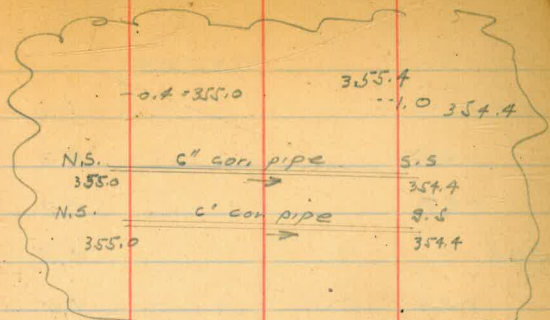 355.4
-0.4 = 355.0
--1.0 354.4
N.S. 6" cor. pipe S.S
355.0 354.4
N.S. 6" cor pipe S.S
355.0 354.4